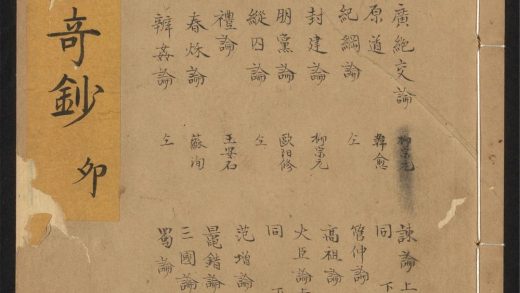 廣絕交論 柳宗元
原道 韓愈
紀綱論 仝
封建論 柳宗元
朋黨論 歐阳修
縱囚論 仝
禮論 王安石
春秋論 蘇洵
辨姦論 仝
諫論上
同 下
管仲論
高祖論
大臣論上
同 下
范增論
鼂錯論
三國論
蜀論
奇鈔 卯